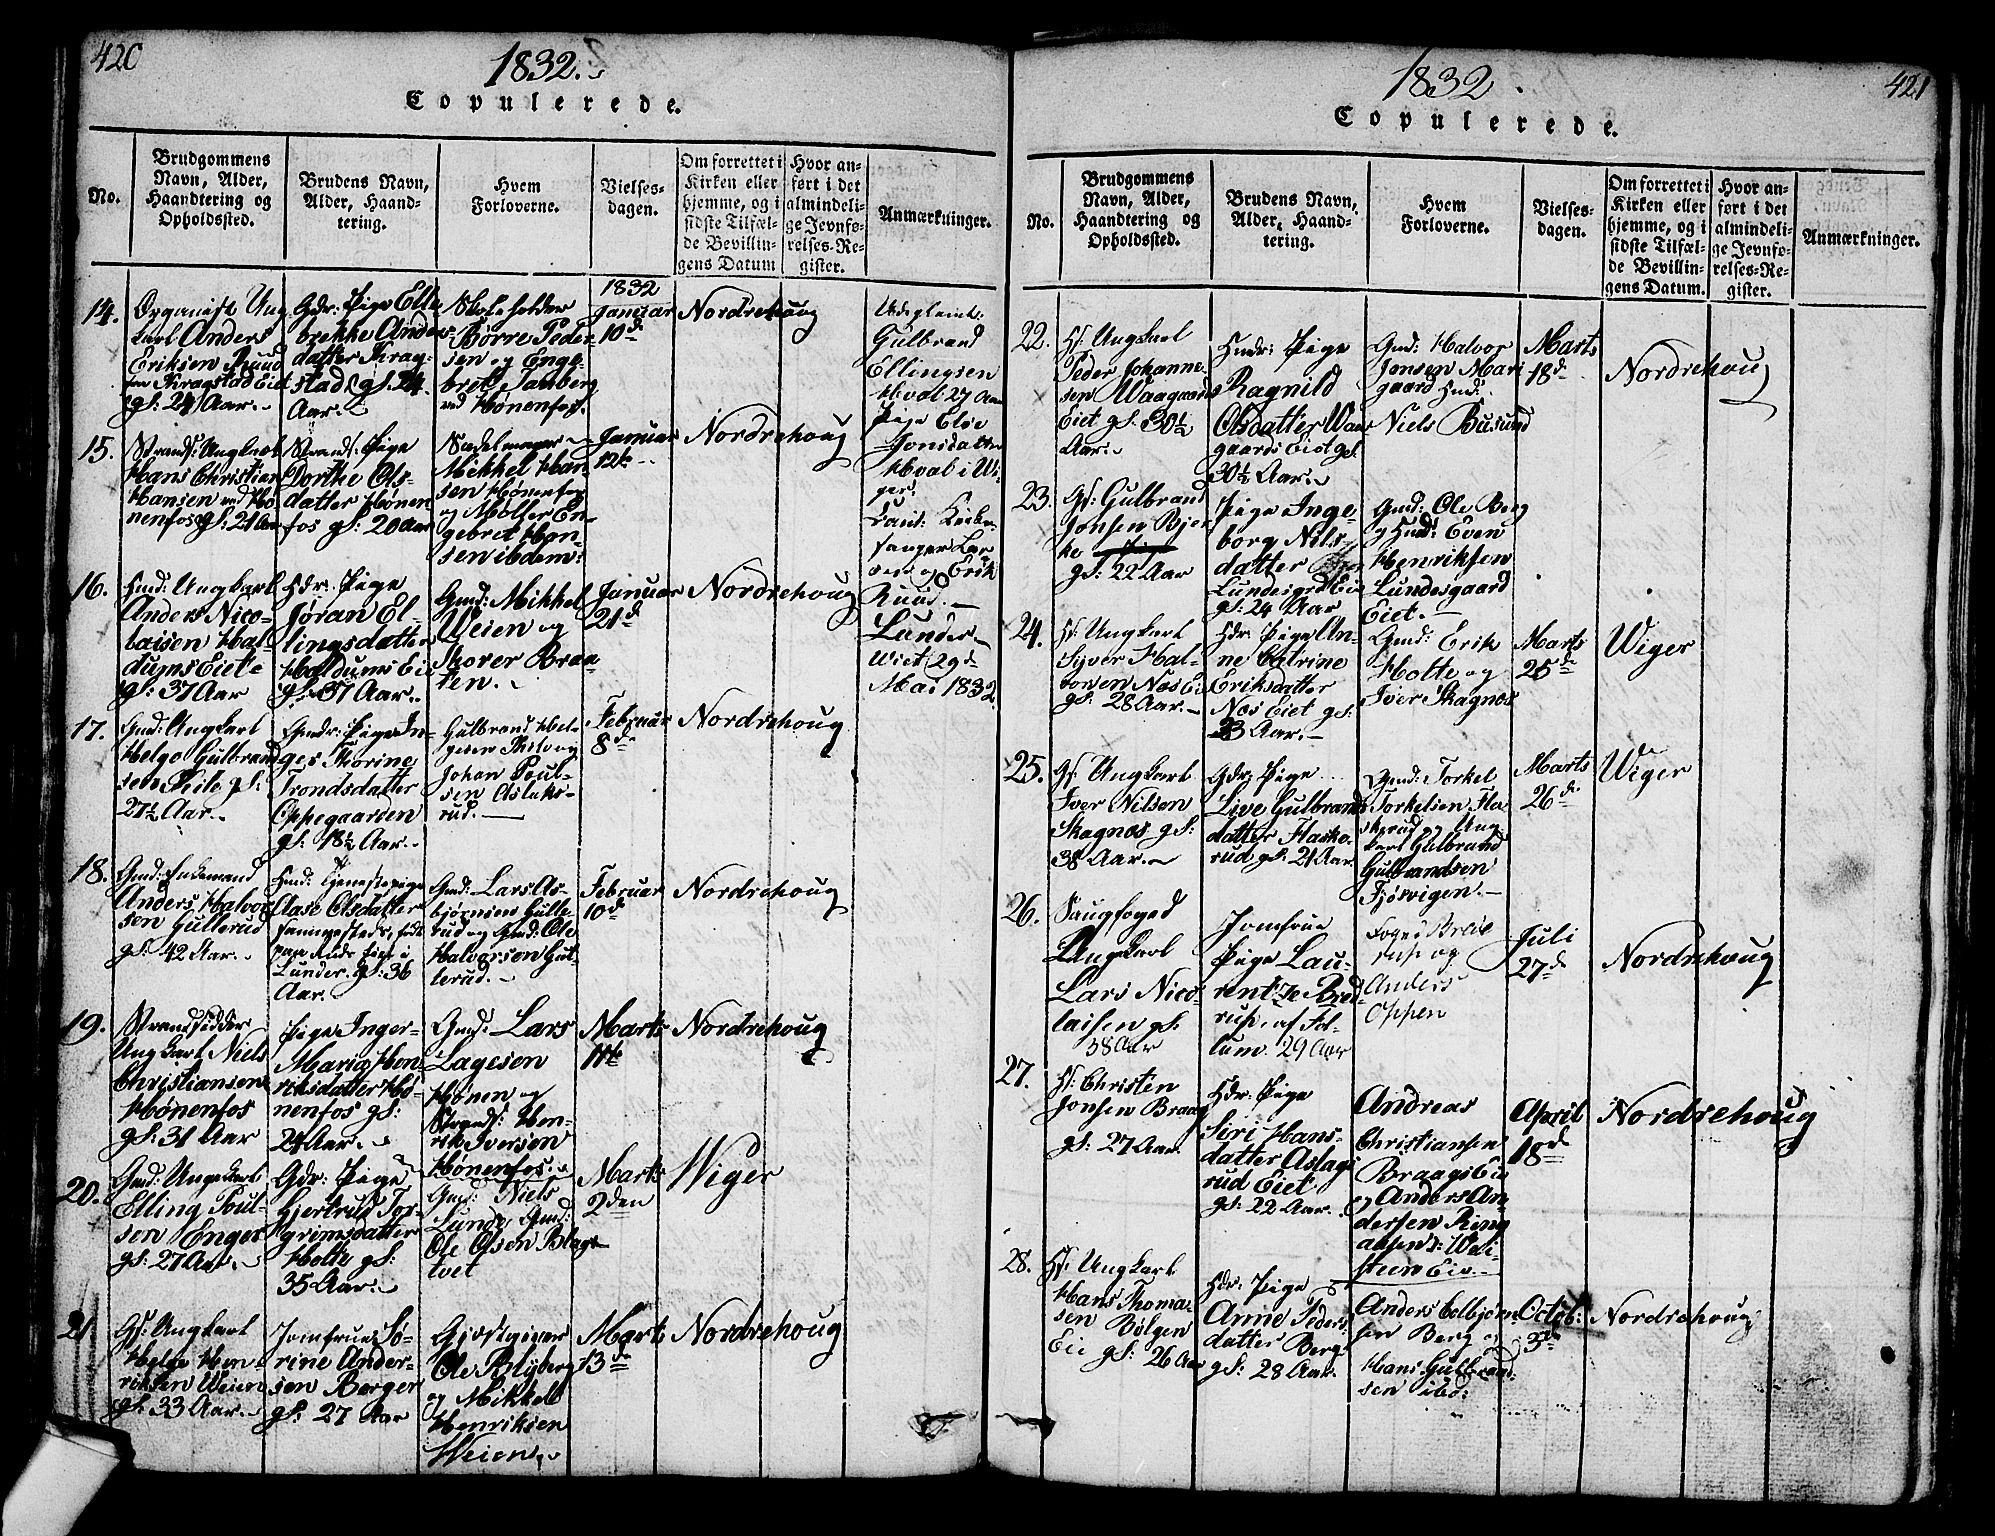 420
1832.
Copulerede.
No.
Brudgommens
Navn, Alder,
Haandtering og
Opholdssted.
Brudens Navn,
Alder, Haand-
tering.
Hvem
Forloverne.
Vielses-
dagen.
Om forrettet i
Kirken eller
hjemme, og i
sidste Tilfæl-
de Bevillin-
gens Datum
Hvor an-
ført i det
almindeli-
ge Jevnfø-
relses-Re-
gister.
Anmærkninger.
14.
Organist Ung
karl Anders
Eriksen Ruud
Kragstad Eiet
gl: 24 Aar.
Gdr: Pige Elle
brekke Anders
datter Krag-
stad gl. 24
Aar.
Skoleholder
Børre Peder-
sen og Enge-
bret
ved Hønenfos.
1832
Januar
10de
Nordrehoug
Gulbrand
Ellingsen
Hval 27 Aar
Pige Else
Jonsdatter
Hval i Wi-
ger.
Kirke-
sanger Lar
og Erik
Ruud.
Lunder
Wiet 29de
Mai 1832
15.
Strands: Ungkarl
Hans Christian
Hansen ved Hø-
nenfos gl: 21 Aar
Strands: Pige
Dorthe Ols-
datter Hønen
fos gl: 20 Aar
Sadelmager
Mikkel Han
sen Hønenfos
og Møller En-
gebret Han-
sen ibdem:
Januar
12te
Nordrehoug
16.
Hmd: Ungkarl
Anders Nico-
laisen Hal-
dums Eiet
gl: 37 Aar
Hdr: Pige
Jøran El-
lingsdatter
Haldums Eie
gl: 37 Aar.
Gmd: Mikkel
Weien og
Thorer Braa
ten.
Januar
21de
Nordrehoug
17.
Gmd: Ungkarl
Helge Gulbrand
sen gl:
27½ Aar.
Gmdr: Pige In-
ger Thorine
Trondsdatter
Oppegaarden
gl: 18½ Aar.
Gulbrand Hel-
gesen og
Johan Poul-
sen Aslaks-
rud.
Februar
8de
Nordrehoug
18.
Gmd: Enkemand
Anders Halvor
sen Gullerud
gl: 42 Aar.
Hmd: Tjenestepige
Aase Olsdatter
Lunder. gl: 36
Aar.
Gmd: Lars As-
bjørnsen Gulle-
rud og Gmd: Ole
Halvorsen Gul-
lerud.
Februar
10de
Nordrehoug
19.
Strandsidder
Ungkarl Niels
Christiansen
Hønenfos
gl: 31 Aar
Pige Inger
Maria Hen-
riksdatter Hø-
nenfos gl:
24 Aar.
Gmd: Lars
Lagesen
Hønen og
Strands: Hen-
rik Iversen
Hønenfos.
Marts
11te
Nordrehoug
20.
Gmd: Ungekarl
Elling Poul-
sen Enger
gl: 27 Aar.
Gdr: Pige
Gjertrud Tor-
grimsdatter
Holte gl:
35 Aar.
Gmd: Niels
Lunde Gmd:
Ole Olsen Blags-
tvet
Marts
2den
Wiger
21
Gs: Ungkarl
Helge Hen-
riksen Weien
gl: 33 Aar.
Jomfrue Sø-
rine Ander-
sen Berger
gl: 27 Aar
Gjæstgiver
Ole Blyberg
og Mikkel
Henriksen
Weien.
Marts
13de
Nordrehoug
1832.
421
Copulerede.
No.
Brudgommens
Navn, Alder,
Haandtering og
Opholdssted.
Brudens Navn,
Alder, Haand-
tering.
Hvem
Forloverne.
Vielses-
dagen.
Om forrettet i
Kirken eller
hjemme, og i
sidste Tilfæl-
de Bevillin-
gens Datum.
Hvor an-
ført i det
almindeli-
ge Jevnfø-
relses-Re-
gister.
Anmærkninger.
22.
Hs: Ungkarl
Peder Johanne-
sen Waagaards
Eiet gl: 30½
Aar.
Hmdr: Pige
Ragnild
Olsdatter Waa-
gaards Eiet gl:
30½ Aar.
Gmd: Halvor
Jonsen Mari
gaard Hmd:
Niels Busund
Marts
18de
Nordrehoug
23.
Gs: Gulbrand
Jonsen Bjer
ke
gl: 22 Aar
Pige Inge-
borg Nils-
datter
Lundesgrd Eie
gl: 24 Aar
Gmd: Ole Berg
og Hmd: Even
Henriksen
Lundesgaard
Eiet.
24.
Hs: Ungkarl
Syver Hal-
vorsen Næs Ei
gl: 28 Aar.
Hdr: Pige An-
ne Catrine
Eriksdatter
Næs Eiet gl:
23 Aar.
Gmd: Erik
Holte og
Iver Skagnæs
Marts
25de
Wiger
25.
Gs: Ungkarl
Iver Nilsen
Skagnæs gl:
38 Aar.
Gdr: Pige
Live Gulbrands
datter Flaske-
rud gl: 21 Aar.
Gmd: Torkel
Torkelsen Fla
skerud og Ung
karl Gulbrand
Gulbrandsen
Fjøsvigen.
Marts
26de
Wiger
26.
Saugfoged
Ungkarl
Lars Nico-
laisen gl:
38 Aar
Jomfrue
Pige Lau-
rentze Bred-
rup, af Fol-
lum. 29 Aar
Foged Bred
rup og
Anders
Oppen
Juli
27de
Nordrehoug
27.
Hs: Christen
Jonsen Braag
gl: 27 Aar.
Hdr: Pige
Siri Hans-
datter Aslags
rud Eiet
gl: 22 Aar.
Andreas
Christiansen
Braags Eie
og Anders An-
dersen Ring
Wel-
steen Eie.
April
18de
Nordrehoug
28.
Hs: Ungkarl
Hans Thoma-
sen Bølgen
Eie gl: 26 Aar
Hdr: Pige
Anne Peders
datter Bergs
gl: 28 Aar.
Anders Colbjørn-
sen Berg og
Hans Gulbrand-
sen ibid:
Octob:
3de
Nordrehoug